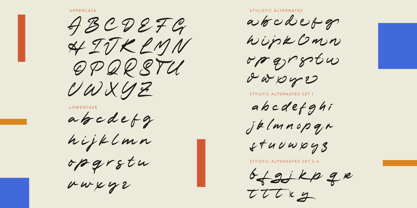 UPPERCASE
A B C D E F G
H I J K L M N
O P Q R S T U
V W X Y Z
LOWERCASE
a b c d e f g
h i j k l m n
o p q r s t u
v w x y z
STYLISTIC ALTERNATES
a b c d e f g
h i j k l m n
o p q r s t u
v w x y z
STYLISTIC ALTERNATES SET 1
a b c d e f g h i
j k l m n o p q r
s t u v w x y z
STYLISTIC ALTERNATES SET 2-4
b f g j k p q x
t t t x y